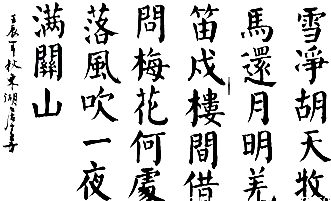 雪淨胡天牧
馬還月明羌
笛戍樓間借
問梅花何處
落風吹一夜
滿關山
壬辰年秋東湖